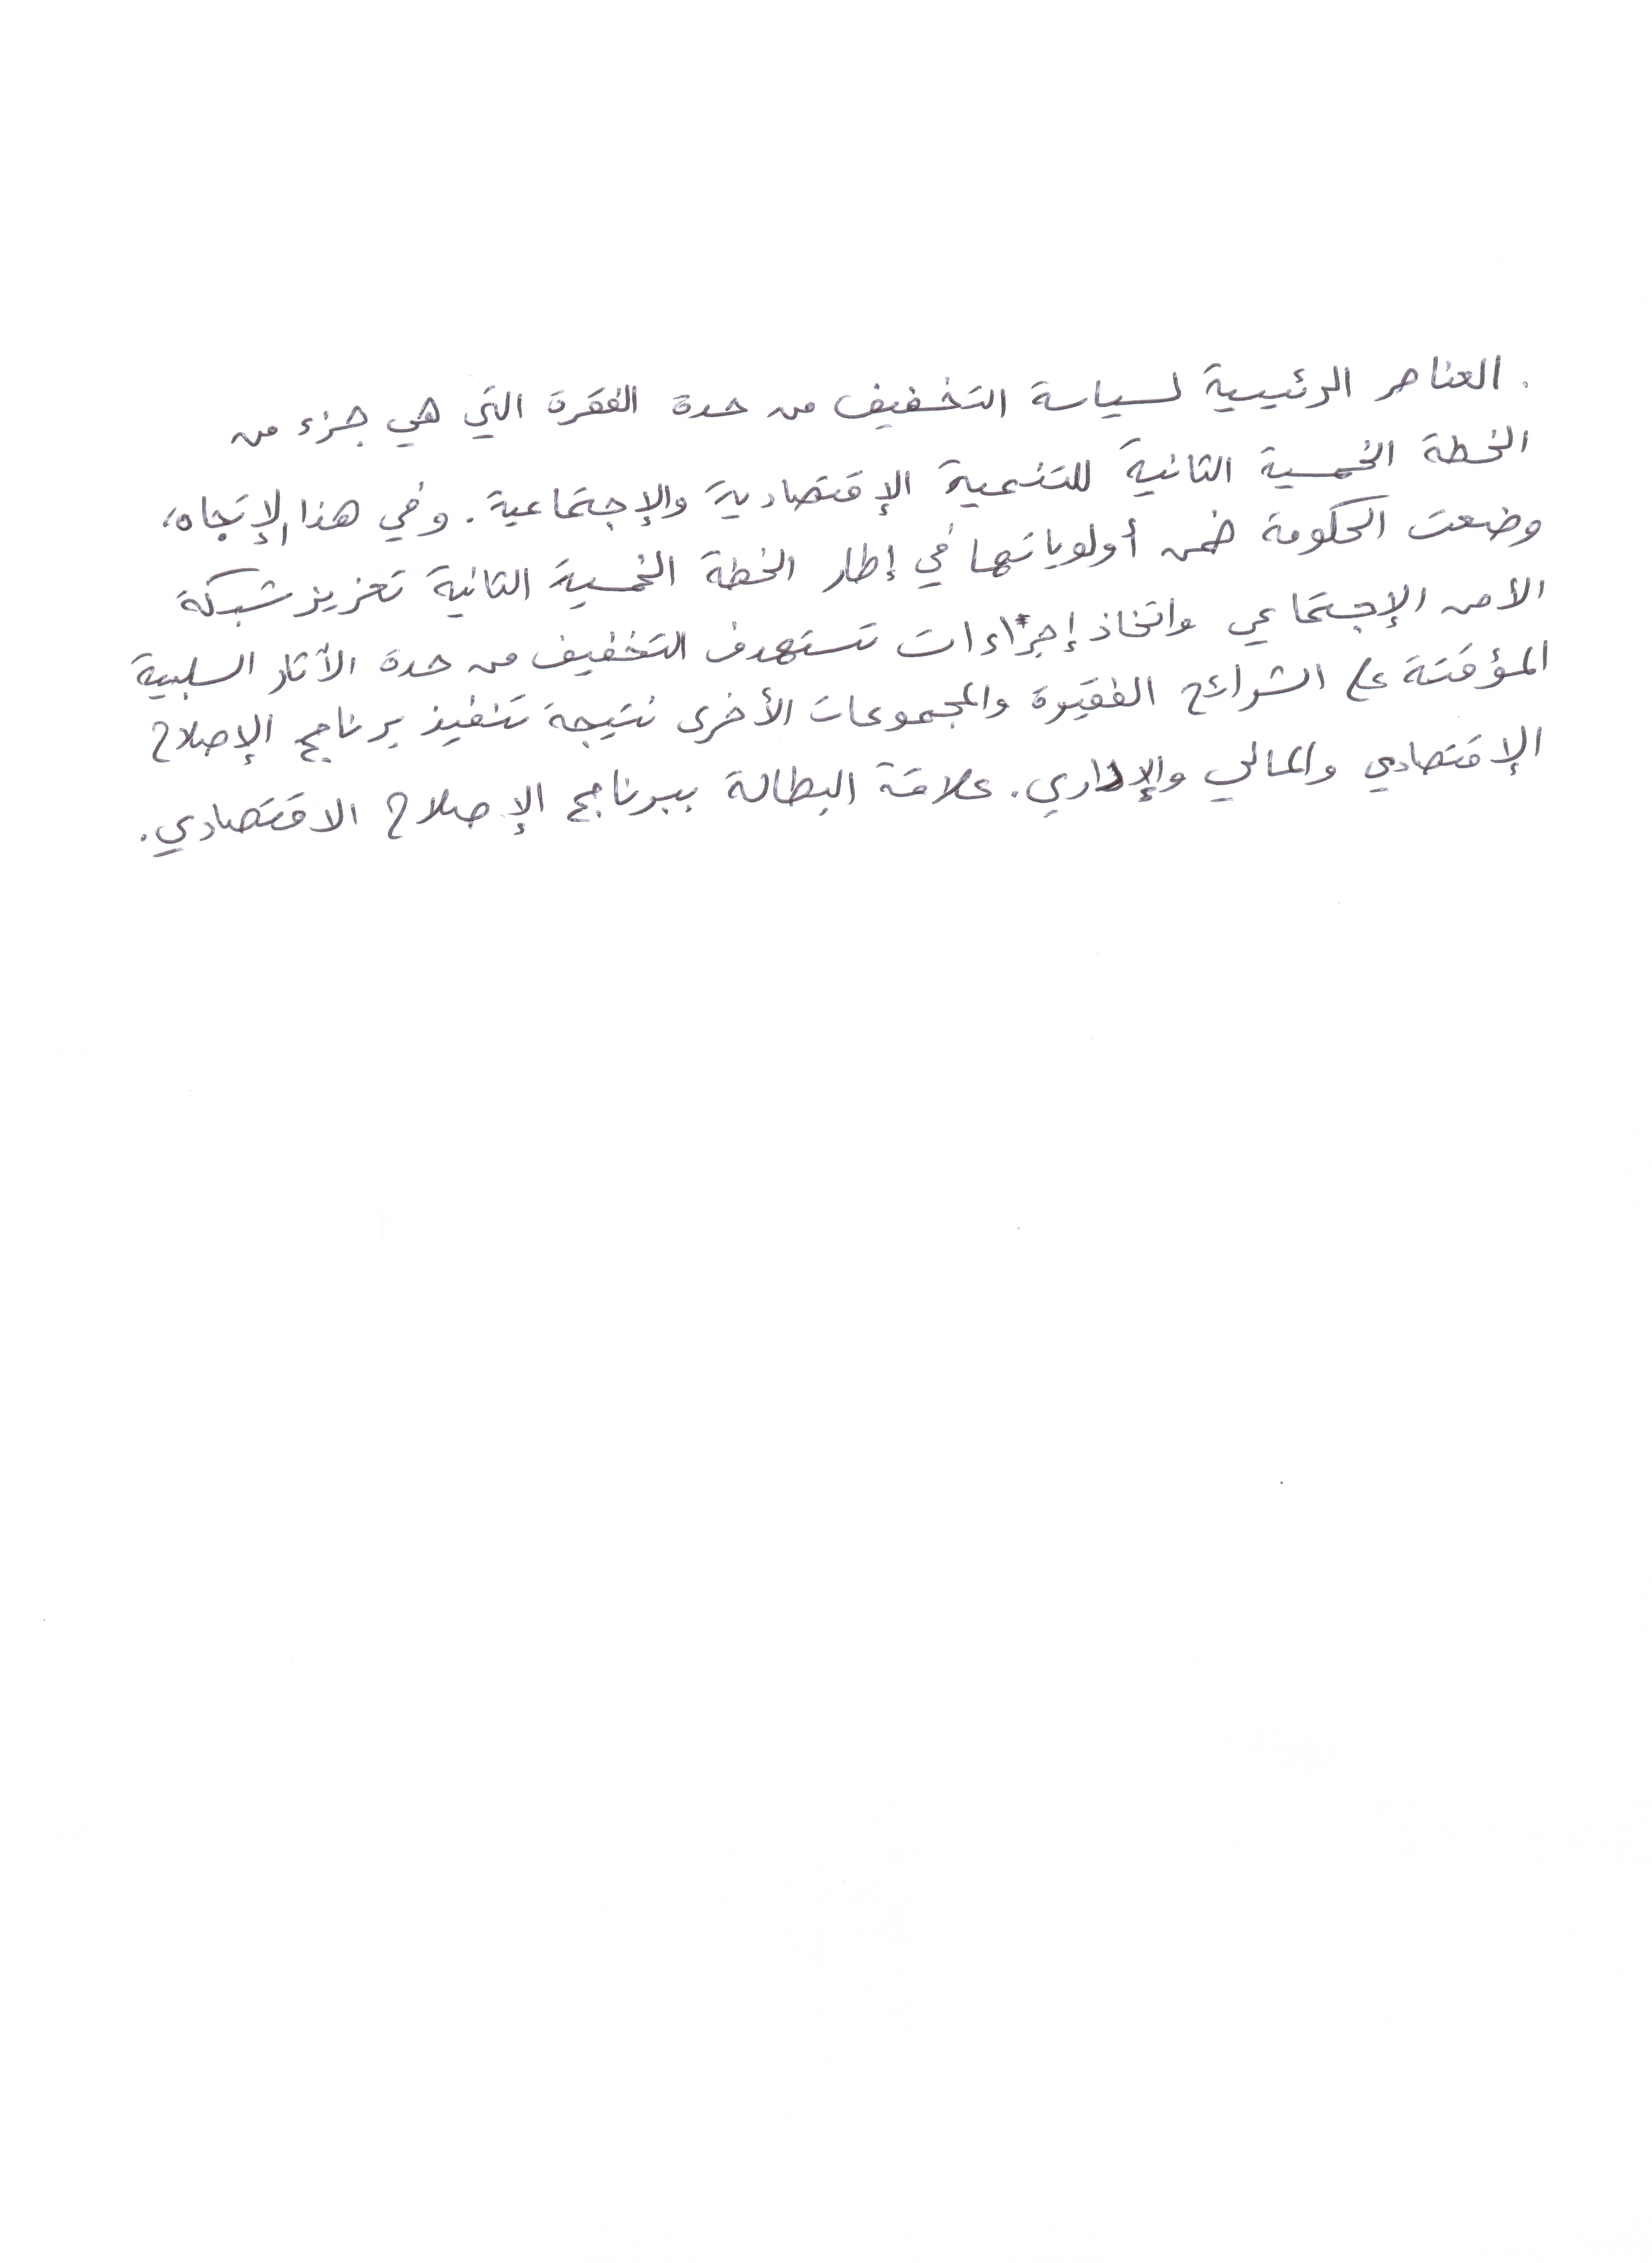 . العناصر الرئيسية لسياسة التخفيف من حدة الفقرة التي هي جزء من
الخطة الخمسية الثانية للتنمية الإقتصادية والإجتماعية. وفي هذا الإتجاه،
وضعت الحكومة ضمن أولوياتها في إطار الخطة الخمسية الثانية تعزيز شبكة
الأمن الإجتماعي واتخاذ إجراءات تستهدف التخفيف من حدة الآثار السلبية
المؤقتة على الشرائح الفقيرة والمجموعات الأخرى نتيجة تنفيذ برنامج الإصلاح
الإقتصادي والمالي والإداري. علاقة البطالة ببرنامج الإصلاح الاقتصادي.